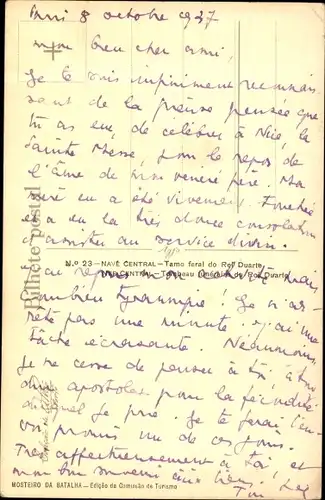 8 octobre 1937
mon bien cher ami,
Je te suis infiniment reconnais-
sant de la pieuse pensée que
tu as eue, de célébrer à Nice, la
Sainte Messe, pour le repos de
l'âme de mon vénéré père. Ma
mère en a été vivement touchée
et a eu la très douce consolation
d'assister au service divin.
Bilhete postal
N.º 23 - NAVE CENTRAL - Tumo feral do Rei Duarte
CENTRAL - Tombeau funéraire du Roi Duarte
J'ai repris mon
combien tyrannique! Je n'ar-
rête pas une minute. J'ai une
tâche écrasante. Néanmoins
je ne cesse de penser à toi, à ton
dur apostolat pour la fécondité
duquel je prie. Je te ferai l'en-
voi promis un de ces jours.
Très affectueusement à toi, et
mon bon souvenir aux tiens,
MOSTEIRO DA BATALHA - Edição da Comissão de Turismo